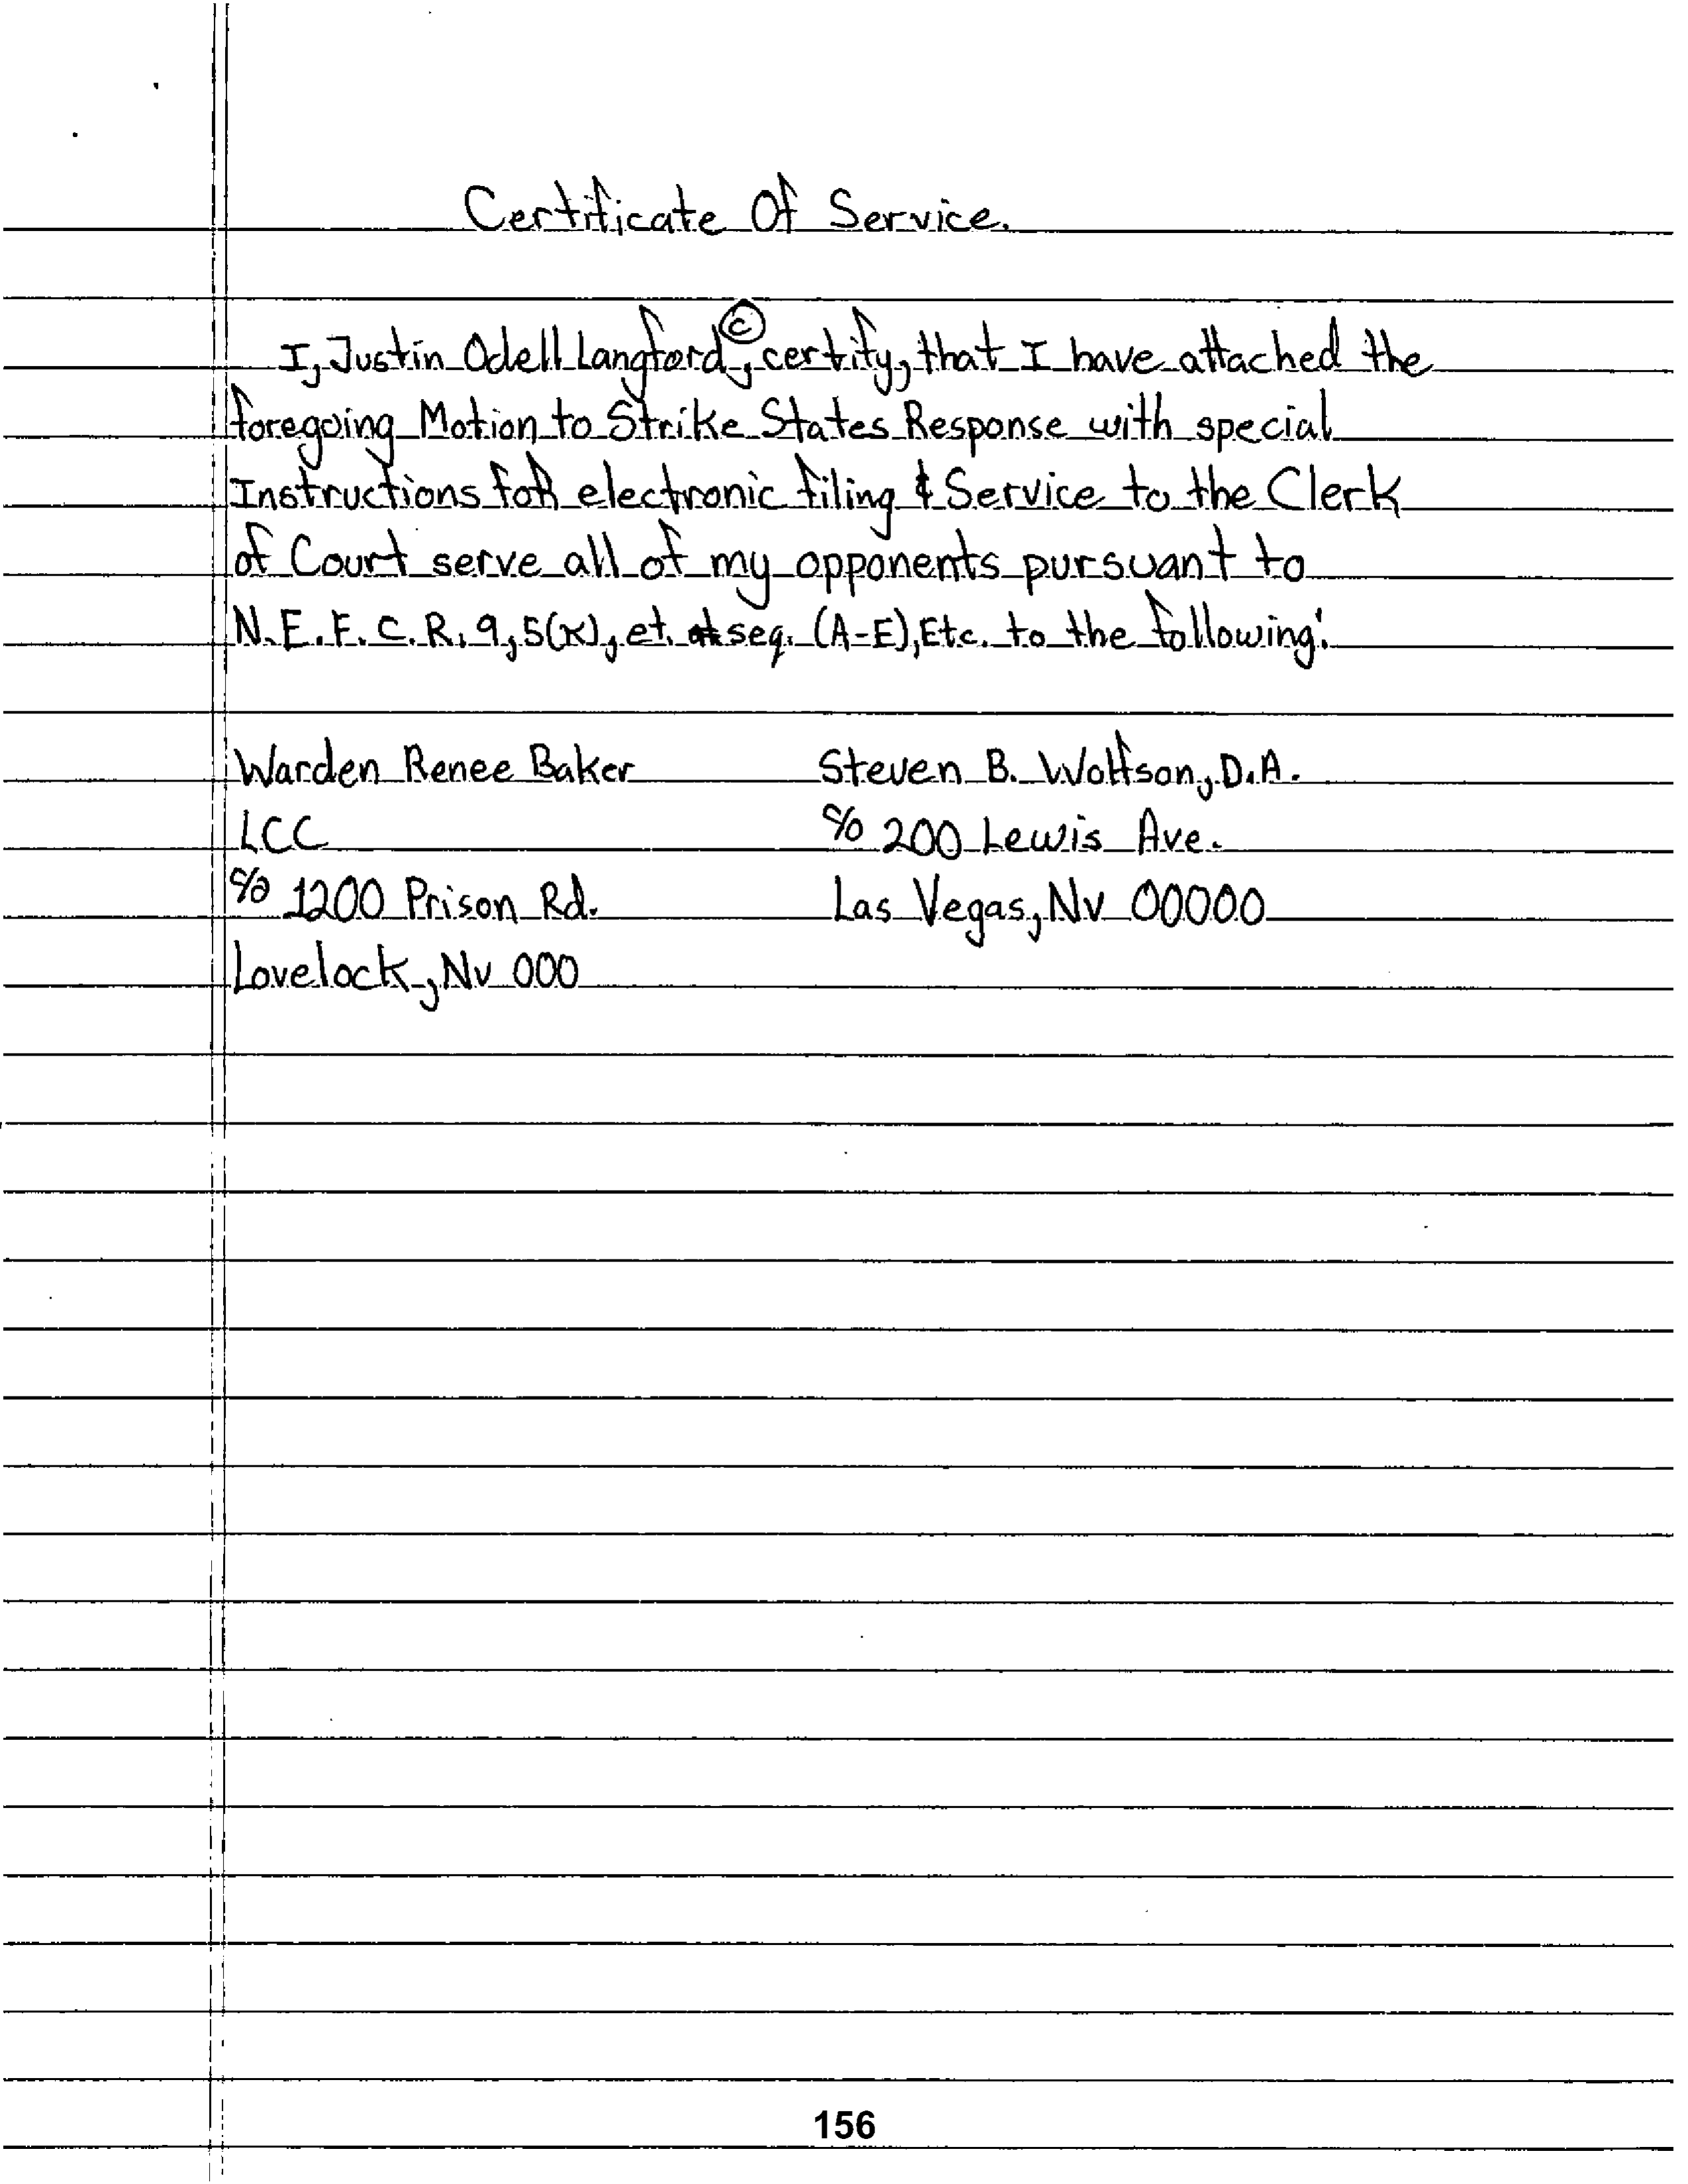 Certificate Of Service.
I, Justin Odell Langford©, certify, that I have attached the
foregoing Motion to Strike States Response with special
Instructions foR electronic filing & Service to the Clerk
of Court serve all of my opponents pursuant to
N.E.F.C.R. 9, 5(k), et. seq. (A-E), Etc. to the following:
Warden Renee Baker Steven B. Wolfson, D.A.
LCC c/o 200 Lewis Ave.
c/o 1200 Prison Rd. Las Vegas, Nv 00000
Lovelock, Nv 000
156